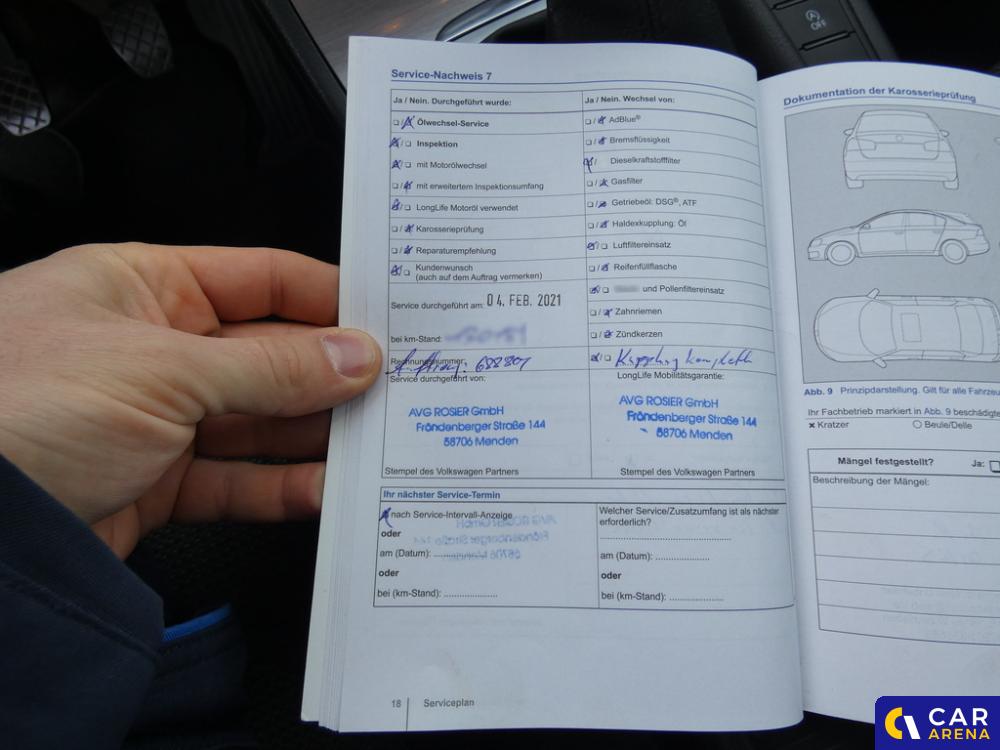 OFF
Service-Nachweis 7
Ja / Nein. Durchgeführt wurde:
Ölwechsel-Service
Inspektion
mit Motorölwechsel
mit erweitertem Inspektionsumfang
LongLife Motoröl verwendet
Karosserieprüfung
Reparaturempfehlung
Kundenwunsch
(auch auf dem Auftrag vermerken)
Service durchgeführt am: 04. FEB. 2021
bei km-Stand:
Rechnungsnummer: Auftrag: 688801
Service durchgeführt von:
AVG ROSIER GmbH
Fröndenberger Straße 144
58706 Menden
Stempel des Volkswagen Partners
Ja / Nein. Wechsel von:
AdBlue®
Bremsflüssigkeit
Dieselkraftstofffilter
Gasfilter
Getriebeöl: DSG®, ATF
Haldexkupplung: Öl
Luftfiltereinsatz
Reifenfüllflasche
und Pollenfiltereinsatz
Zahnriemen
Zündkerzen
Kupplung komplett
LongLife Mobilitätsgarantie:
AVG ROSIER GmbH
Fröndenberger Straße 144
58706 Menden
Stempel des Volkswagen Partners
Ihr nächster Service-Termin
nach Service-Intervall-Anzeige
oder
am (Datum): ....................
oder
bei (km-Stand): ....................
Welcher Service/Zusatzumfang ist als nächster
erforderlich?
am (Datum): ....................
oder
bei (km-Stand): ....................
18 Serviceplan
Dokumentation der Karosserieprüfung
Abb. 9 Prinzipdarstellung. Gilt für alle Fahrzeu
Ihr Fachbetrieb markiert in Abb. 9 beschädigte
x Kratzer
Beule/Delle
Mängel festgestellt? Ja:
Beschreibung der Mängel:
CAR
ARENA